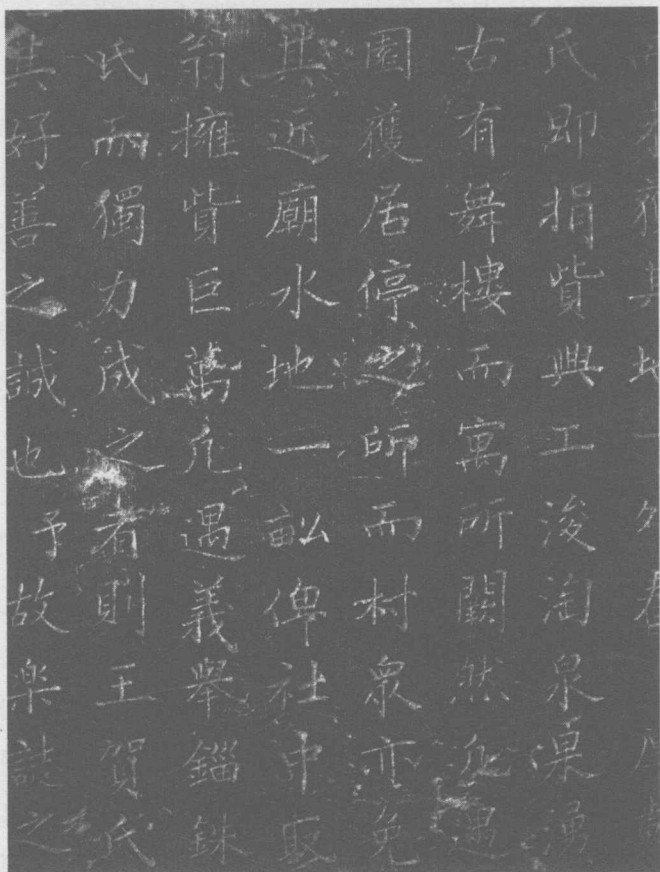 其地
氏即捐貲興工浚淘泉果湧
古有舞樓而寓所闕然凡遇
園獲居停之所而村衆亦免
其近廟水地一畝俾社中取
翁擁貲巨萬凡遇義舉錙銖
氏而獨力成之者則王賀氏
其好善之誠也予故楽誌之